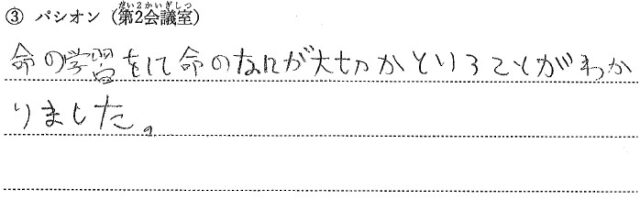 ③ パシオン（第2会議室）
命の学習をして命のなにが大切かということがわか
りました。